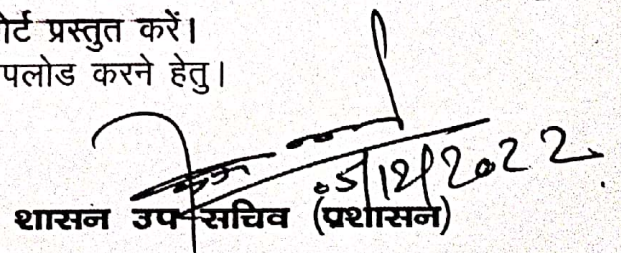 ोर्ट प्रस्तुत करें।
पलोड करने हेतु।
5/12/2022
शासन उप सचिव (प्रशासन)